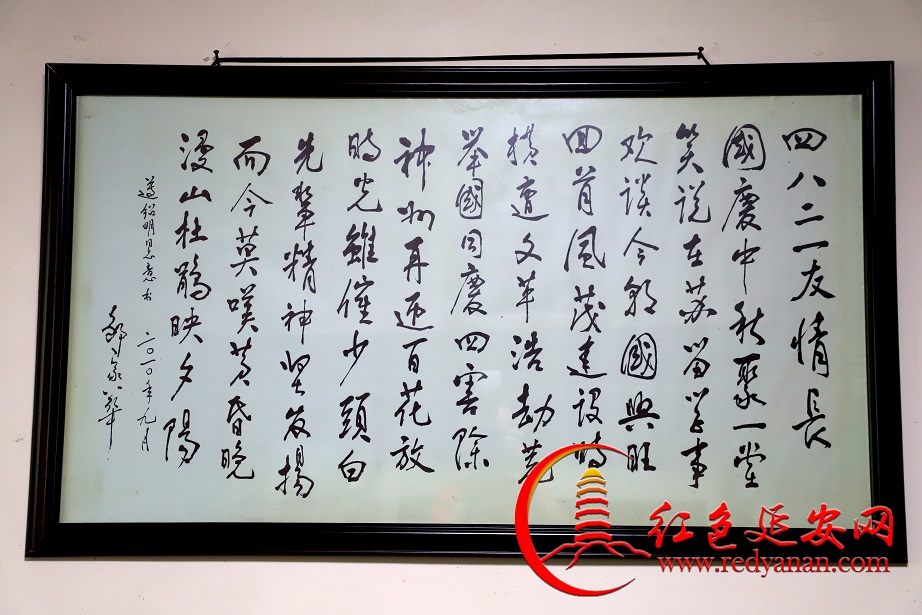 四八二一友情長
國慶中秋聚一堂
笑说在苏留学事
欢谈今朝國興旺
回首風茂建设時
横遭文革浩劫荒
举國同慶四害除
神州再迎百花放
時光虽催少頭白
先輩精神坚发揚
而今莫嘆黄昏晚
漫山杜鹃映夕陽
遵绍明思意书
二〇一〇年九月
鄒家華
红色延安网
www.redyanan.com